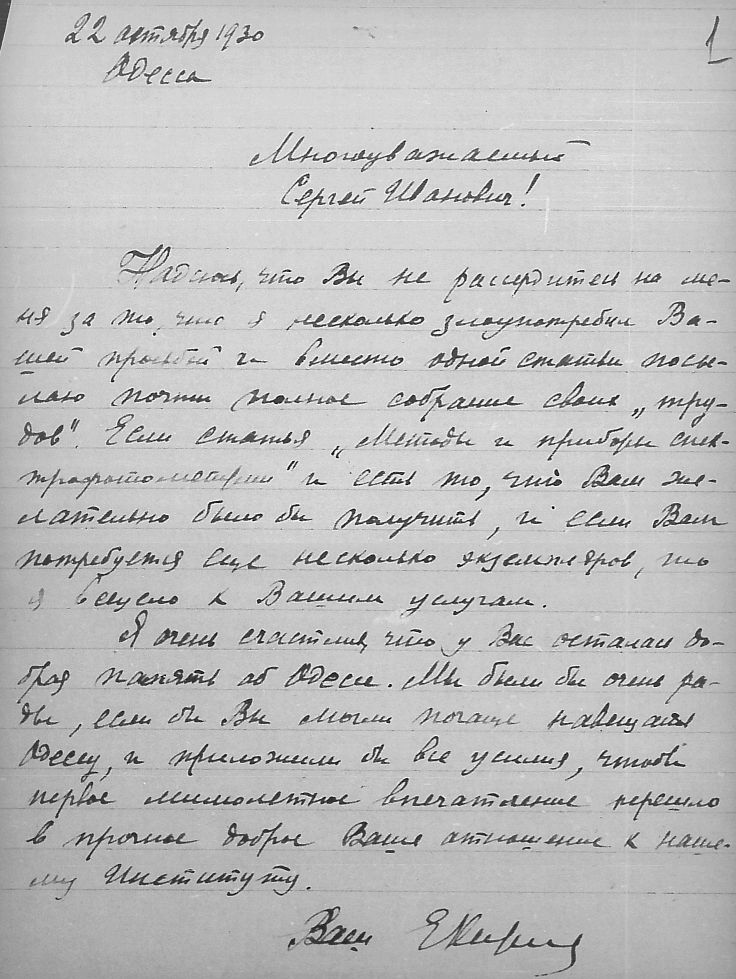 22 октября 1930
1
Одесса
Многоуважаемый
Сергей Иванович!
Надеюсь, что Вы не рассердитесь на ме-
ня за то, что я несколько злоупотребил Ва-
шей просьбой и вместо одной статьи посы-
лаю почти полное собрание своих „тру-
дов". Если статья „Методы и приборы спек-
трофотометрии" и есть то, что Вам же-
лательно было бы получить, и если Вам
потребуется еще несколько экземпляров, то
я всецело к Вашим услугам.
Я очень счастлив, что у Вас осталась до-
брая память об Одессе. Мы были бы очень ра-
ды, если бы Вы могли почаще навещать
Одессу, и приложили бы все усилия, чтобы
первое мимолетное впечатление перешло
в прочное доброе Ваше отношение к наше-
му Институту.
Ваш